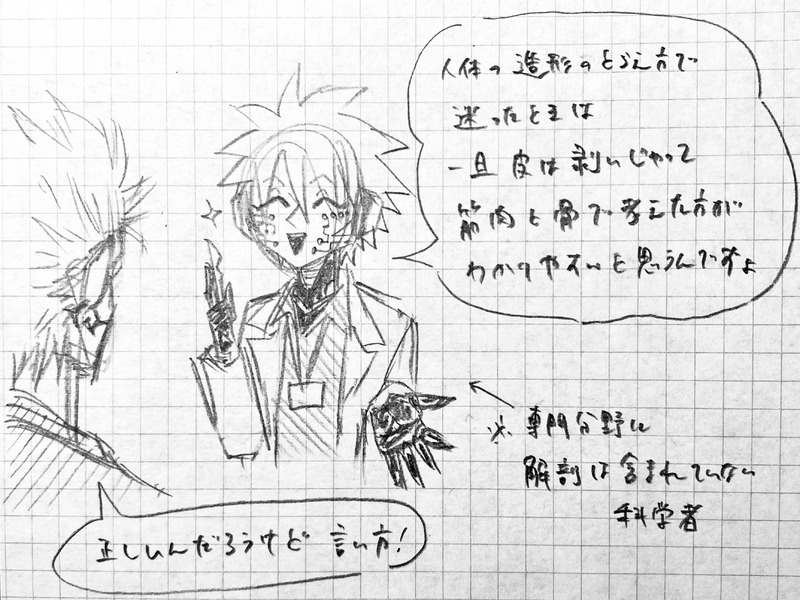 人体の造形のとらえ方で
迷ったときは
一旦皮は剥いじゃって
筋肉と骨で考えた方が
わかりやすいと思うんですよ
※専門分野に
解剖は含まれていない
科学者
正しいんだろうけど言い方!